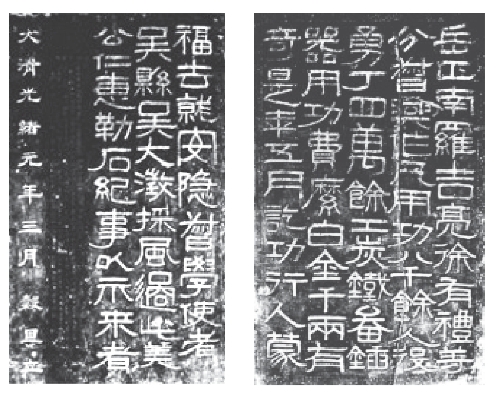 岳正南羅吉亮徐有禮等
分督興作凡用功八千餘人役
勇丁四萬餘工炭鐵畚鍤
器用功費縻白金千兩有
奇是年五月訖功行人蒙
福去就安隱督學使者
吳縣吳大澂採風過此美
公仁惠勒石紀事以示來者
大清光緒元年三月